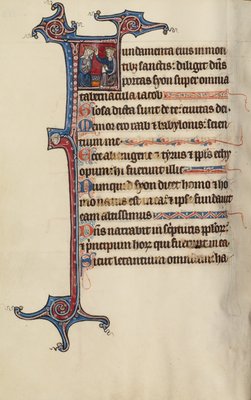 Fundamenta eius in mon
tib; sanctis: diligit dñs
portas syon super omnia
tabernacula iacob
Gl'osa dicta sunt de te: ciuitas dei
Memor ero raab ⁊ babylonis: scien
tium me
Ecce alienigene ⁊ tyrus ⁊ pp̃ls ethy
opum: hii fuerunt illic
Nunquid syon dicet homo ⁊ ho
mo natus est in ea: ⁊ ip̃e fundauit
eam altissimus
Dñs narrabit in sc̃pturis pp̃lor̃
⁊ principum: hor̃ qui fuerunt in ea
Sicut letantium omnium ha